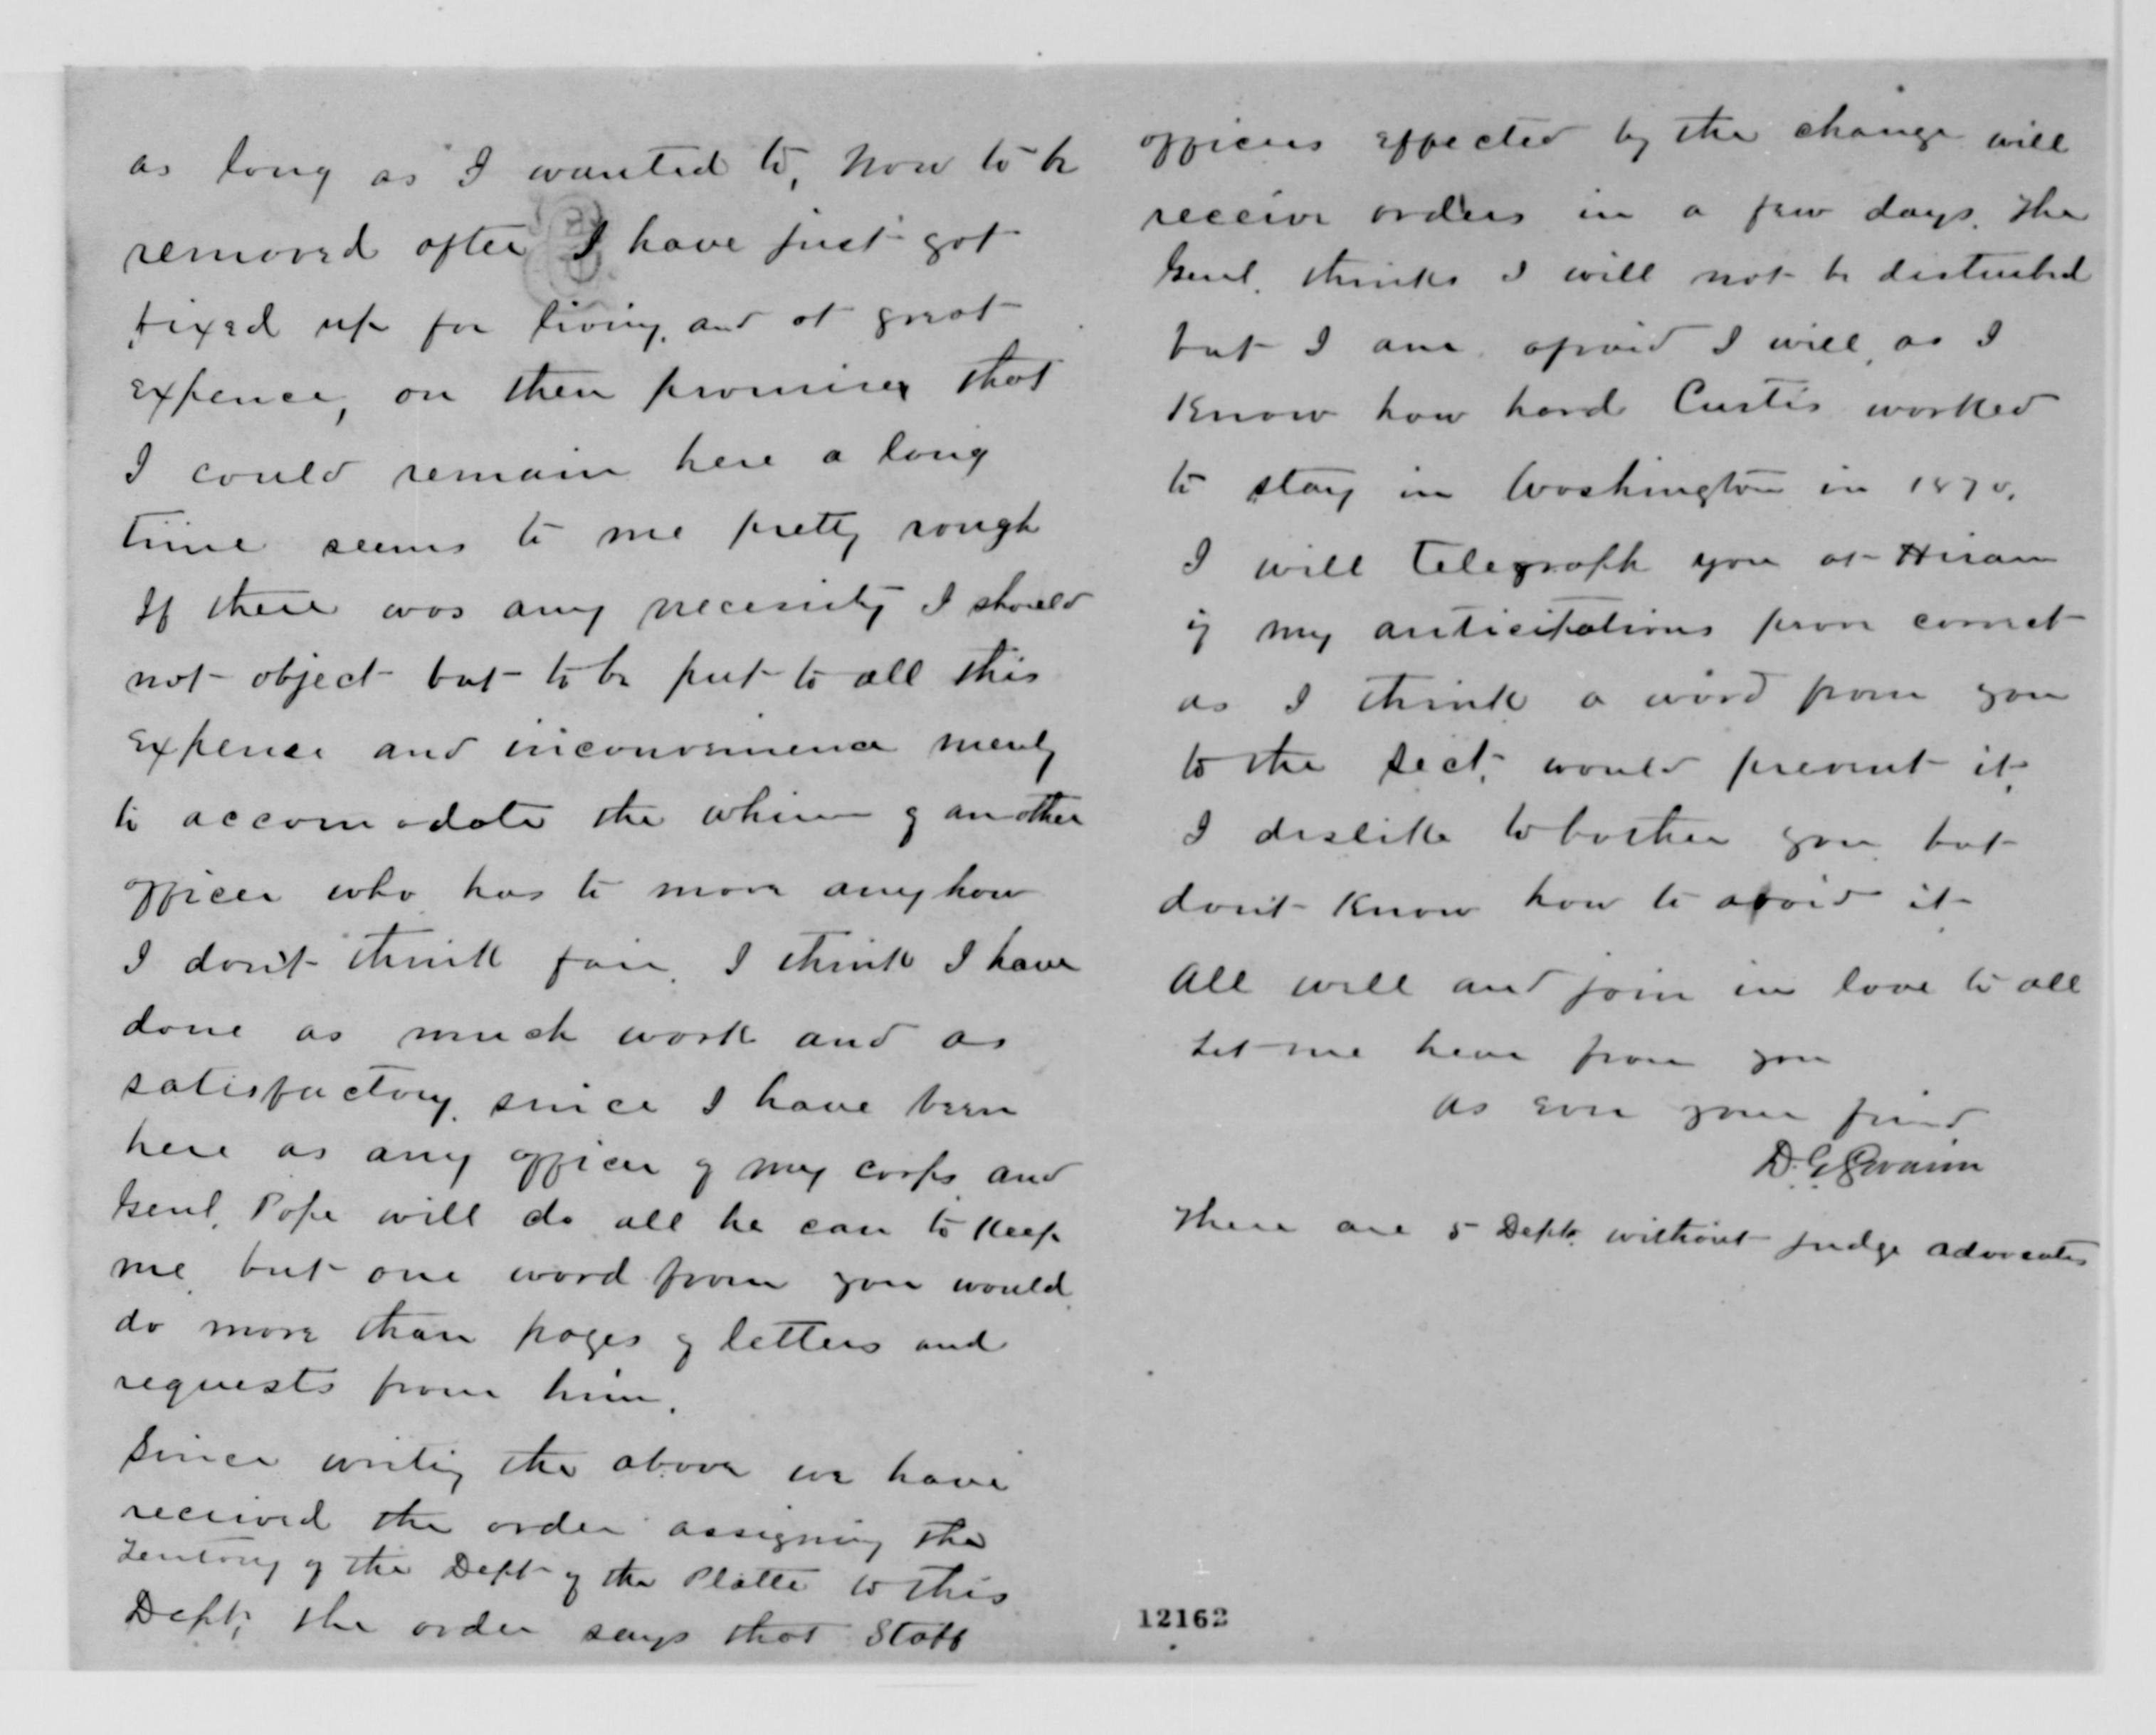 as long as I wanted to, now to be
removed after I have just got
fixed up for living, and at great
expence, on then promises that
I could remain here a long
time seems to me pretty rough
If there was any necessity I should
not object but to be put to all this
expence and inconvenience merely
to accomodate the whim of another
officer who has to move any how
I don't think fair. I think I have
done as much work and as
satisfactory since I have been
here as any officer of my corps and
Genl. Pope will do all he can to keep
me but one word from you would
do more than pages of letters and
requests from him.
Since writing the above we have
received the order assigning the
Teritory of the Dept of the Platte to this
Dept, the order says that Staff
officers effected by the change will
receive orders in a few days. The
Genl. thinks I will not be disturbed
but I am afraid I will, as I
know how hard Curtis worked
to stay in Washington in 1870.
I will telegraph you at Hiram
if my anticipations prove correct
as I think a word from you
to the Sect. would prevent it.
I dislike to bother you but
don't know how to avoid it
All well and join in love to all
Let me hear from you
As ever your friend
D. G. Swaim
There are 5 Depts. without judge advocates
12162